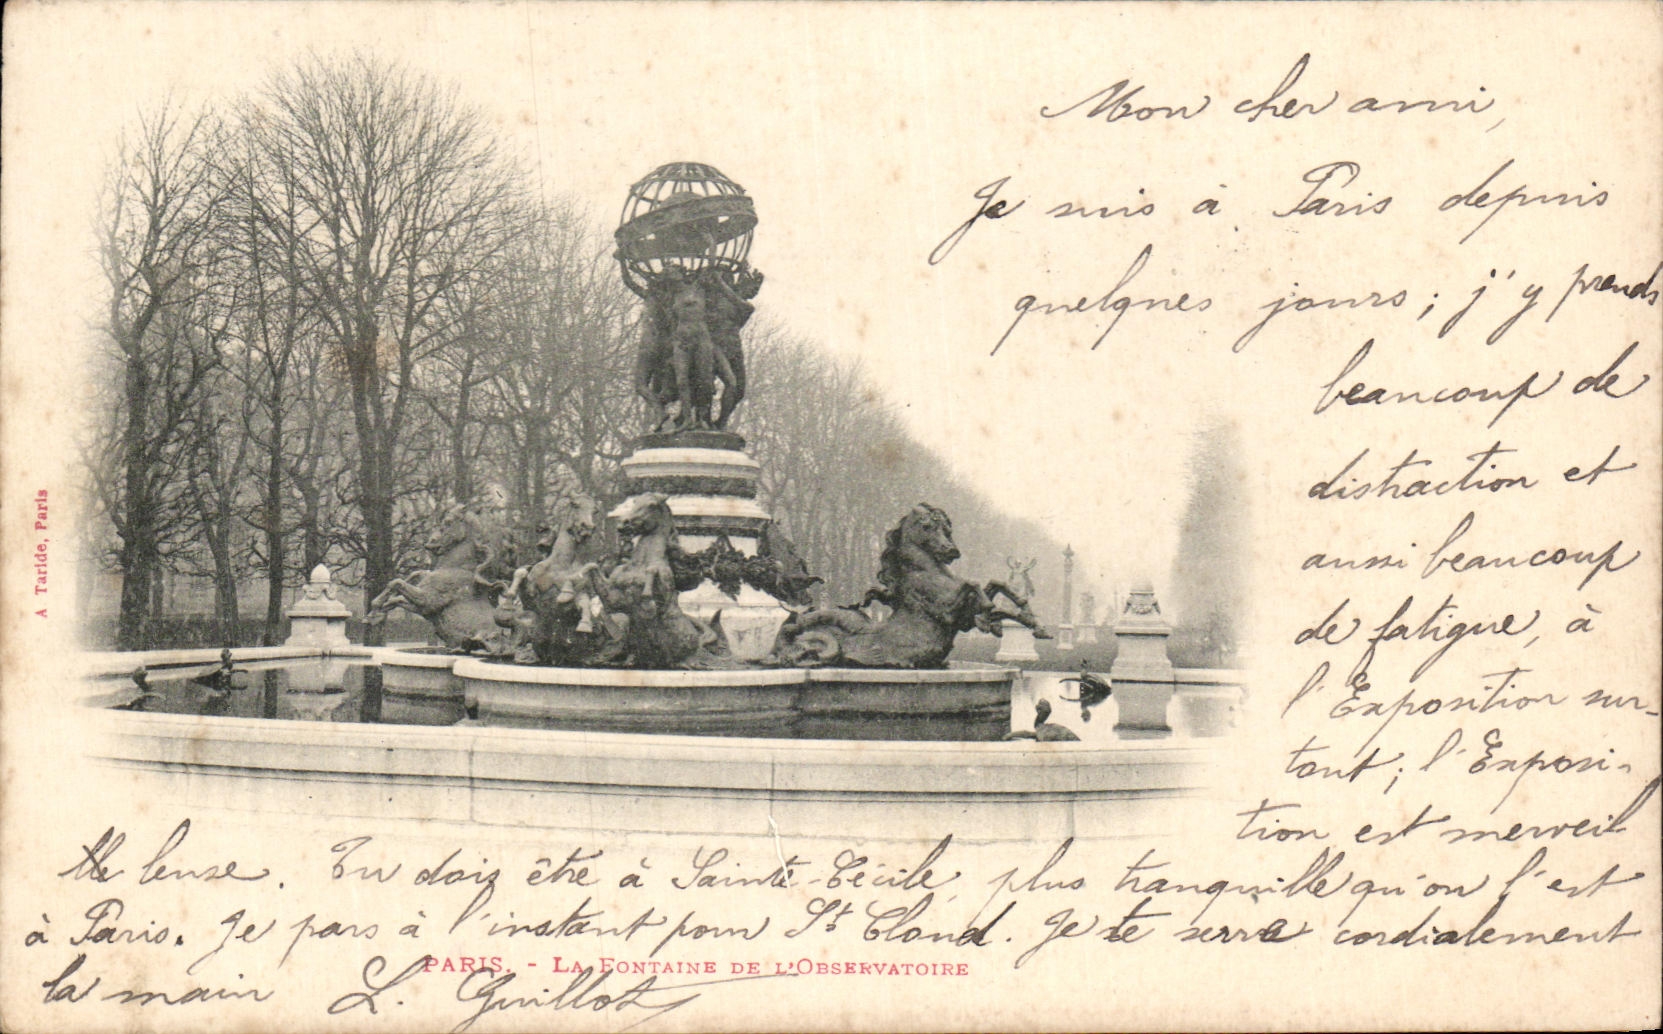 Mon cher ami,
Je suis à Paris depuis
quelques jours ; j'y prends
beaucoup de
distraction et
aussi beaucoup
de fatigue, à
l'Exposition sur-
tout ; l'Exposi-
tion est merveil
leuse. Tu dois être à Sainte-Cécile, plus tranquille qu'on l'est
à Paris. Je pars à l'instant pour St Cloud. Je te serre cordialement
la main L. Guillot
A Taride, Paris
PARIS. - LA FONTAINE DE L'OBSERVATOIRE